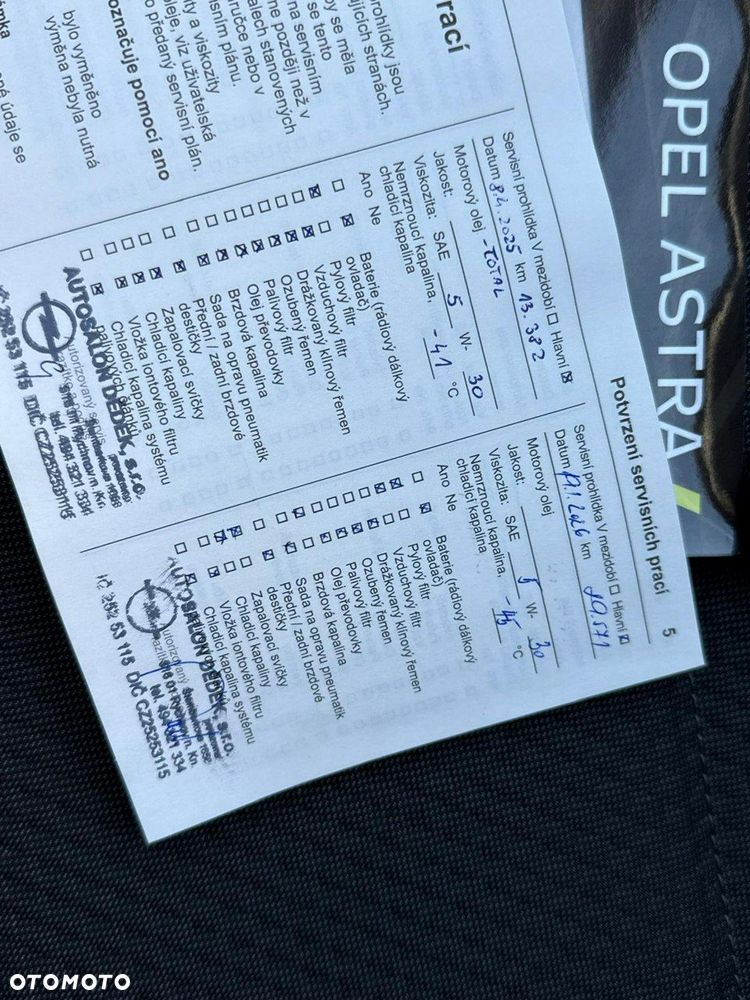 OPEL ASTRA
rací
rohlídky jsou
ujících stranách.
by se měla
se tento
na servisním
me později než v
alech stanovených
ručce nebo v
isním plánu.
ty a viskozity
leje, viz uživatelská
o předaný servisní plán.
označuje pomocí ano
bylo vyměněno
výměna nebyla nutná
né údaje se
Servisní prohlídka V mezidobí ☐ Hlavní ☒
Datum 8.4.2025 km 13.382
Motorový olej - TOTAL
Jakost:
Viskozita: SAE 5 W- 30
Nemrznoucí kapalina, -41 °C
chladicí kapalina
Ano Ne
Baterie (rádiový dálkový
ovladač)
Pylový filtr
Vzduchový filtr
Drážkovaný klínový řemen
Ozubený řemen
Palivový filtr
Olej převodovky
Brzdová kapalina
Sada na opravu pneumatik
Přední / zadní brzdové
destičky
Zapalovací svíčky
Chladicí kapaliny
Vložka iontového filtru
Chladicí kapalina systému
AUTOSALON DĚDEK, s.r.o.
IČ: 252 53 115 DIČ CZ25253115
Potvrzení servisních prací 5
Servisní prohlídka V mezidobí ☐ Hlavní ☒
Datum km
Motorový olej
Jakost:
Viskozita: SAE 5 W- 30
Nemrznoucí kapalina, -45 °C
chladicí kapalina
Ano Ne
Baterie (rádiový dálkový
ovladač)
Pylový filtr
Vzduchový filtr
Drážkovaný klínový řemen
Ozubený řemen
Palivový filtr
Olej převodovky
Brzdová kapalina
Sada na opravu pneumatik
Přední / zadní brzdové
destičky
Zapalovací svíčky
Chladicí kapaliny
Vložka iontového filtru
Chladicí kapalina systému
AUTOSALON DĚDEK, s.r.o.
IČ 252 53 115 DIČ CZ25253115
OTOMOTO